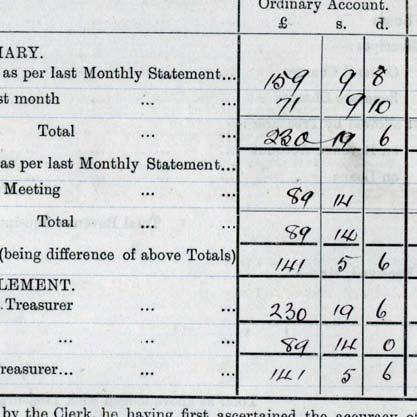 Ordinary Account.
£ s. d.
MARY.
as per last Monthly Statement... 159 9 8
st month ... ... 71 9 10
Total ... ... 230 19 6
as per last Monthly Statement...
Meeting ... ... 89 14
Total ... ... 89 14
(being difference of above Totals) 141 5 6
LEMENT.
Treasurer ... ... 230 19 6
... ... 89 14 0
reasurer... ... ... 141 5 6
by the Clerk, he having first ascertained the accuracy of